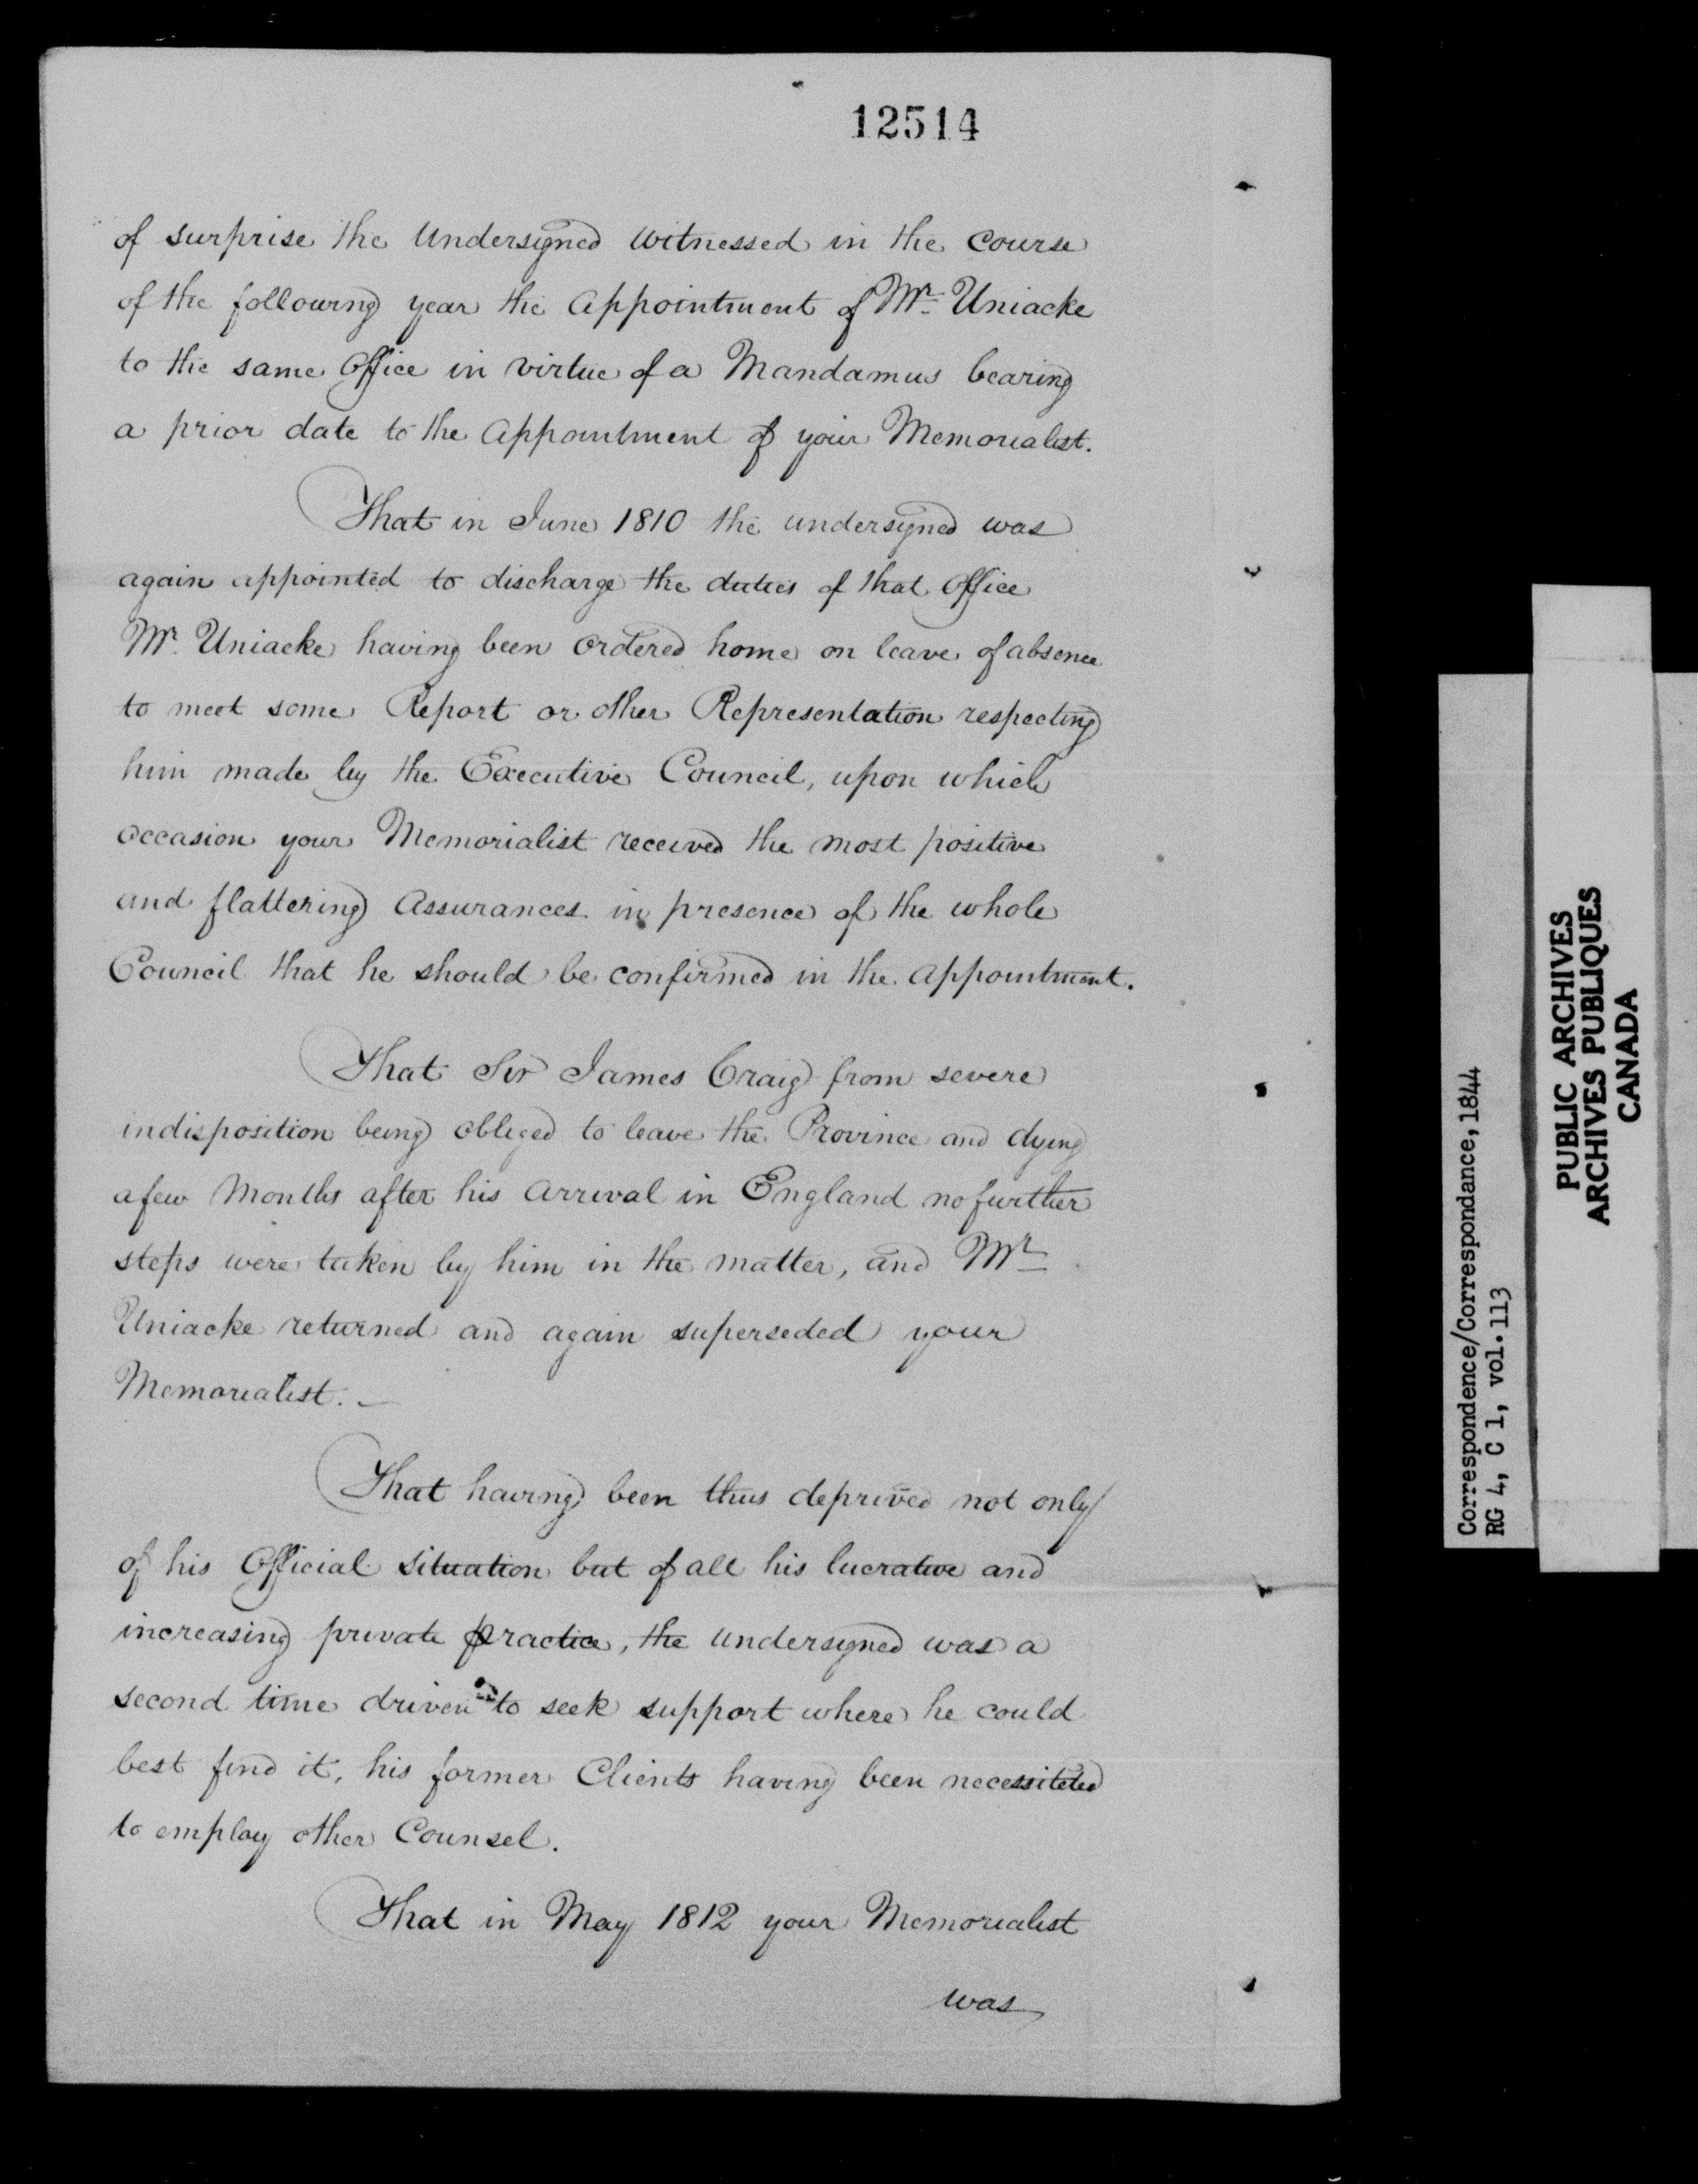 12514
of surprise the Undersigned witnessed in the course
of the following year the Appointment of Mr. Uniacke
to the same Office in virtue of a Mandamus bearing
a prior date to the Appointment of your Memorialist.
That in June 1810 the undersigned was
again appointed to discharge the duties of that Office
Mr. Uniacke having been ordered home on leave of absence
to meet some Report or other Representation respecting
him made by the Executive Council, upon which
occasion your Memorialist received the most positive
and flattering Assurances in presence of the whole
Council that he should be confirmed in the Appointment.
That Sir James Craig from severe
indisposition being obliged to leave the Province and dying
a few Months after his arrival in England no further
steps were taken by him in the matter, and Mr
Uniacke returned and again superseded your
Memorialist. —
That having been thus deprived not only
of his Official situation but of all his lucrative and
increasing private practice, the undersigned was a
second time driven to seek support where he could
best find it, his former Clients having been necessitated
to employ other Counsel.
That in May 1812 your Memorialist
was
Correspondence/Correspondance, 1844
RG 4, C 1, vol. 113
PUBLIC ARCHIVES
ARCHIVES PUBLIQUES
CANADA